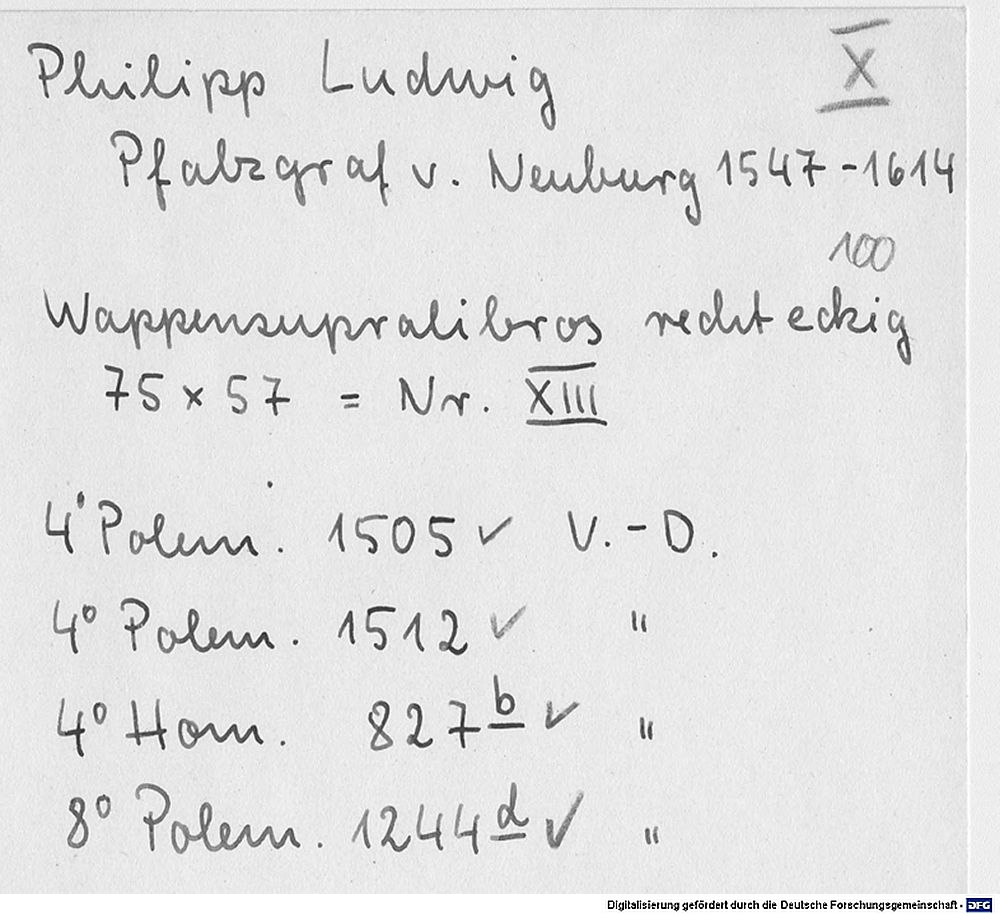 Philipp Ludwig X
Pfalzgraf v. Neuburg 1547-1614
100
Wappensupralibros rechteckig
75 x 57 = Nr. XIII
4° Polem. 1505 ✓ V.-D.
4° Polem. 1512 ✓ "
4° Hom. 827 b ✓ "
8° Polem. 1244 d ✓ "
Digitalisierung gefördert durch die Deutsche Forschungsgemeinschaft - DFG